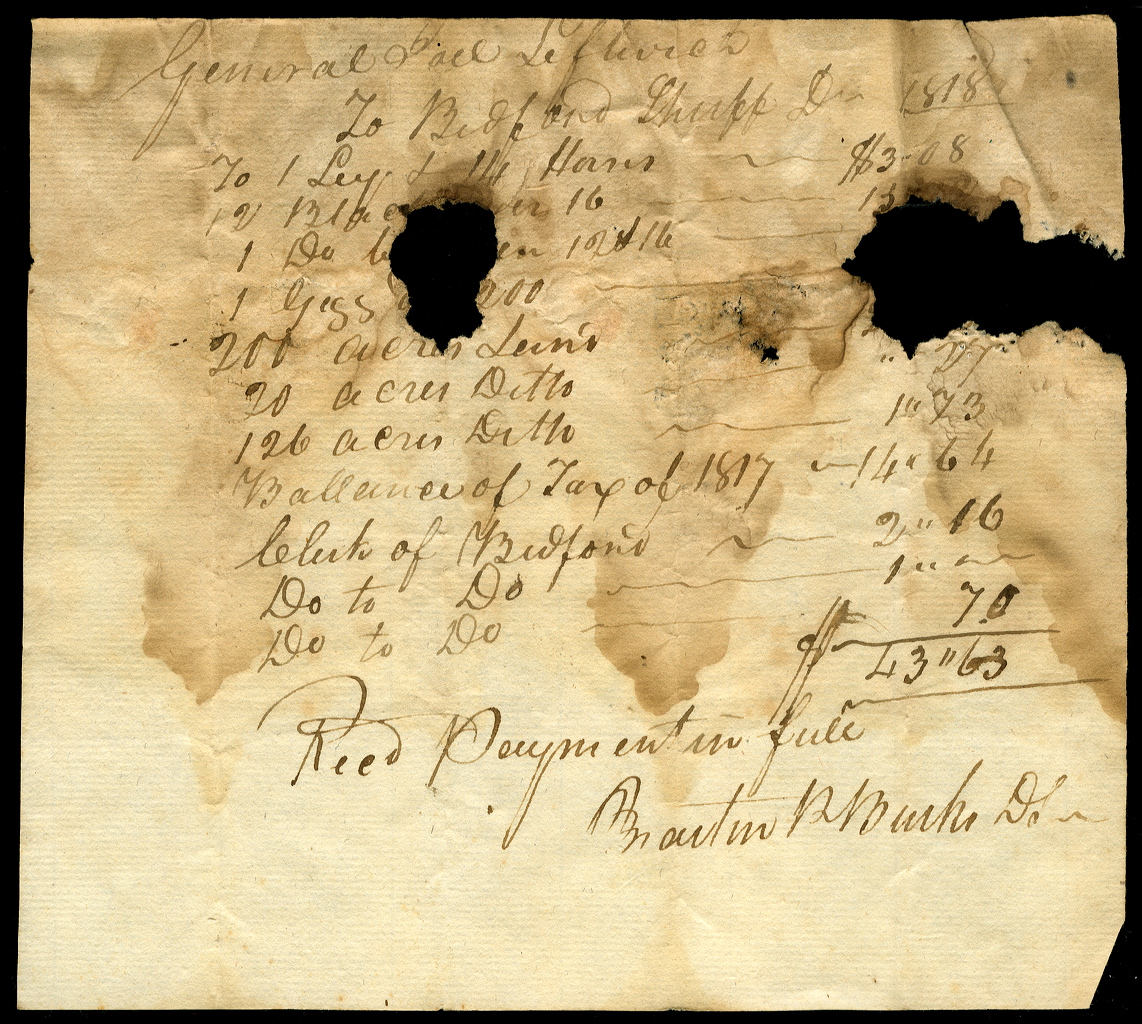 General Joel Leftwich
To Bedford Shriff Dr 1818
To 1 Ley & 14 Horses $3-08
12 Blac 16 13
1 Do be en 12 & 16
1 Gigg 200
200 acres Land
20 acres Ditto " 27
126 acres Ditto 1" 73
Ballance of Tax of 1817 14" 64
Clerk of Bedford 2" 16
Do to Do 1"
Do to Do 70
$ 43"63
Recd Payment in full
Martin P Burks DS